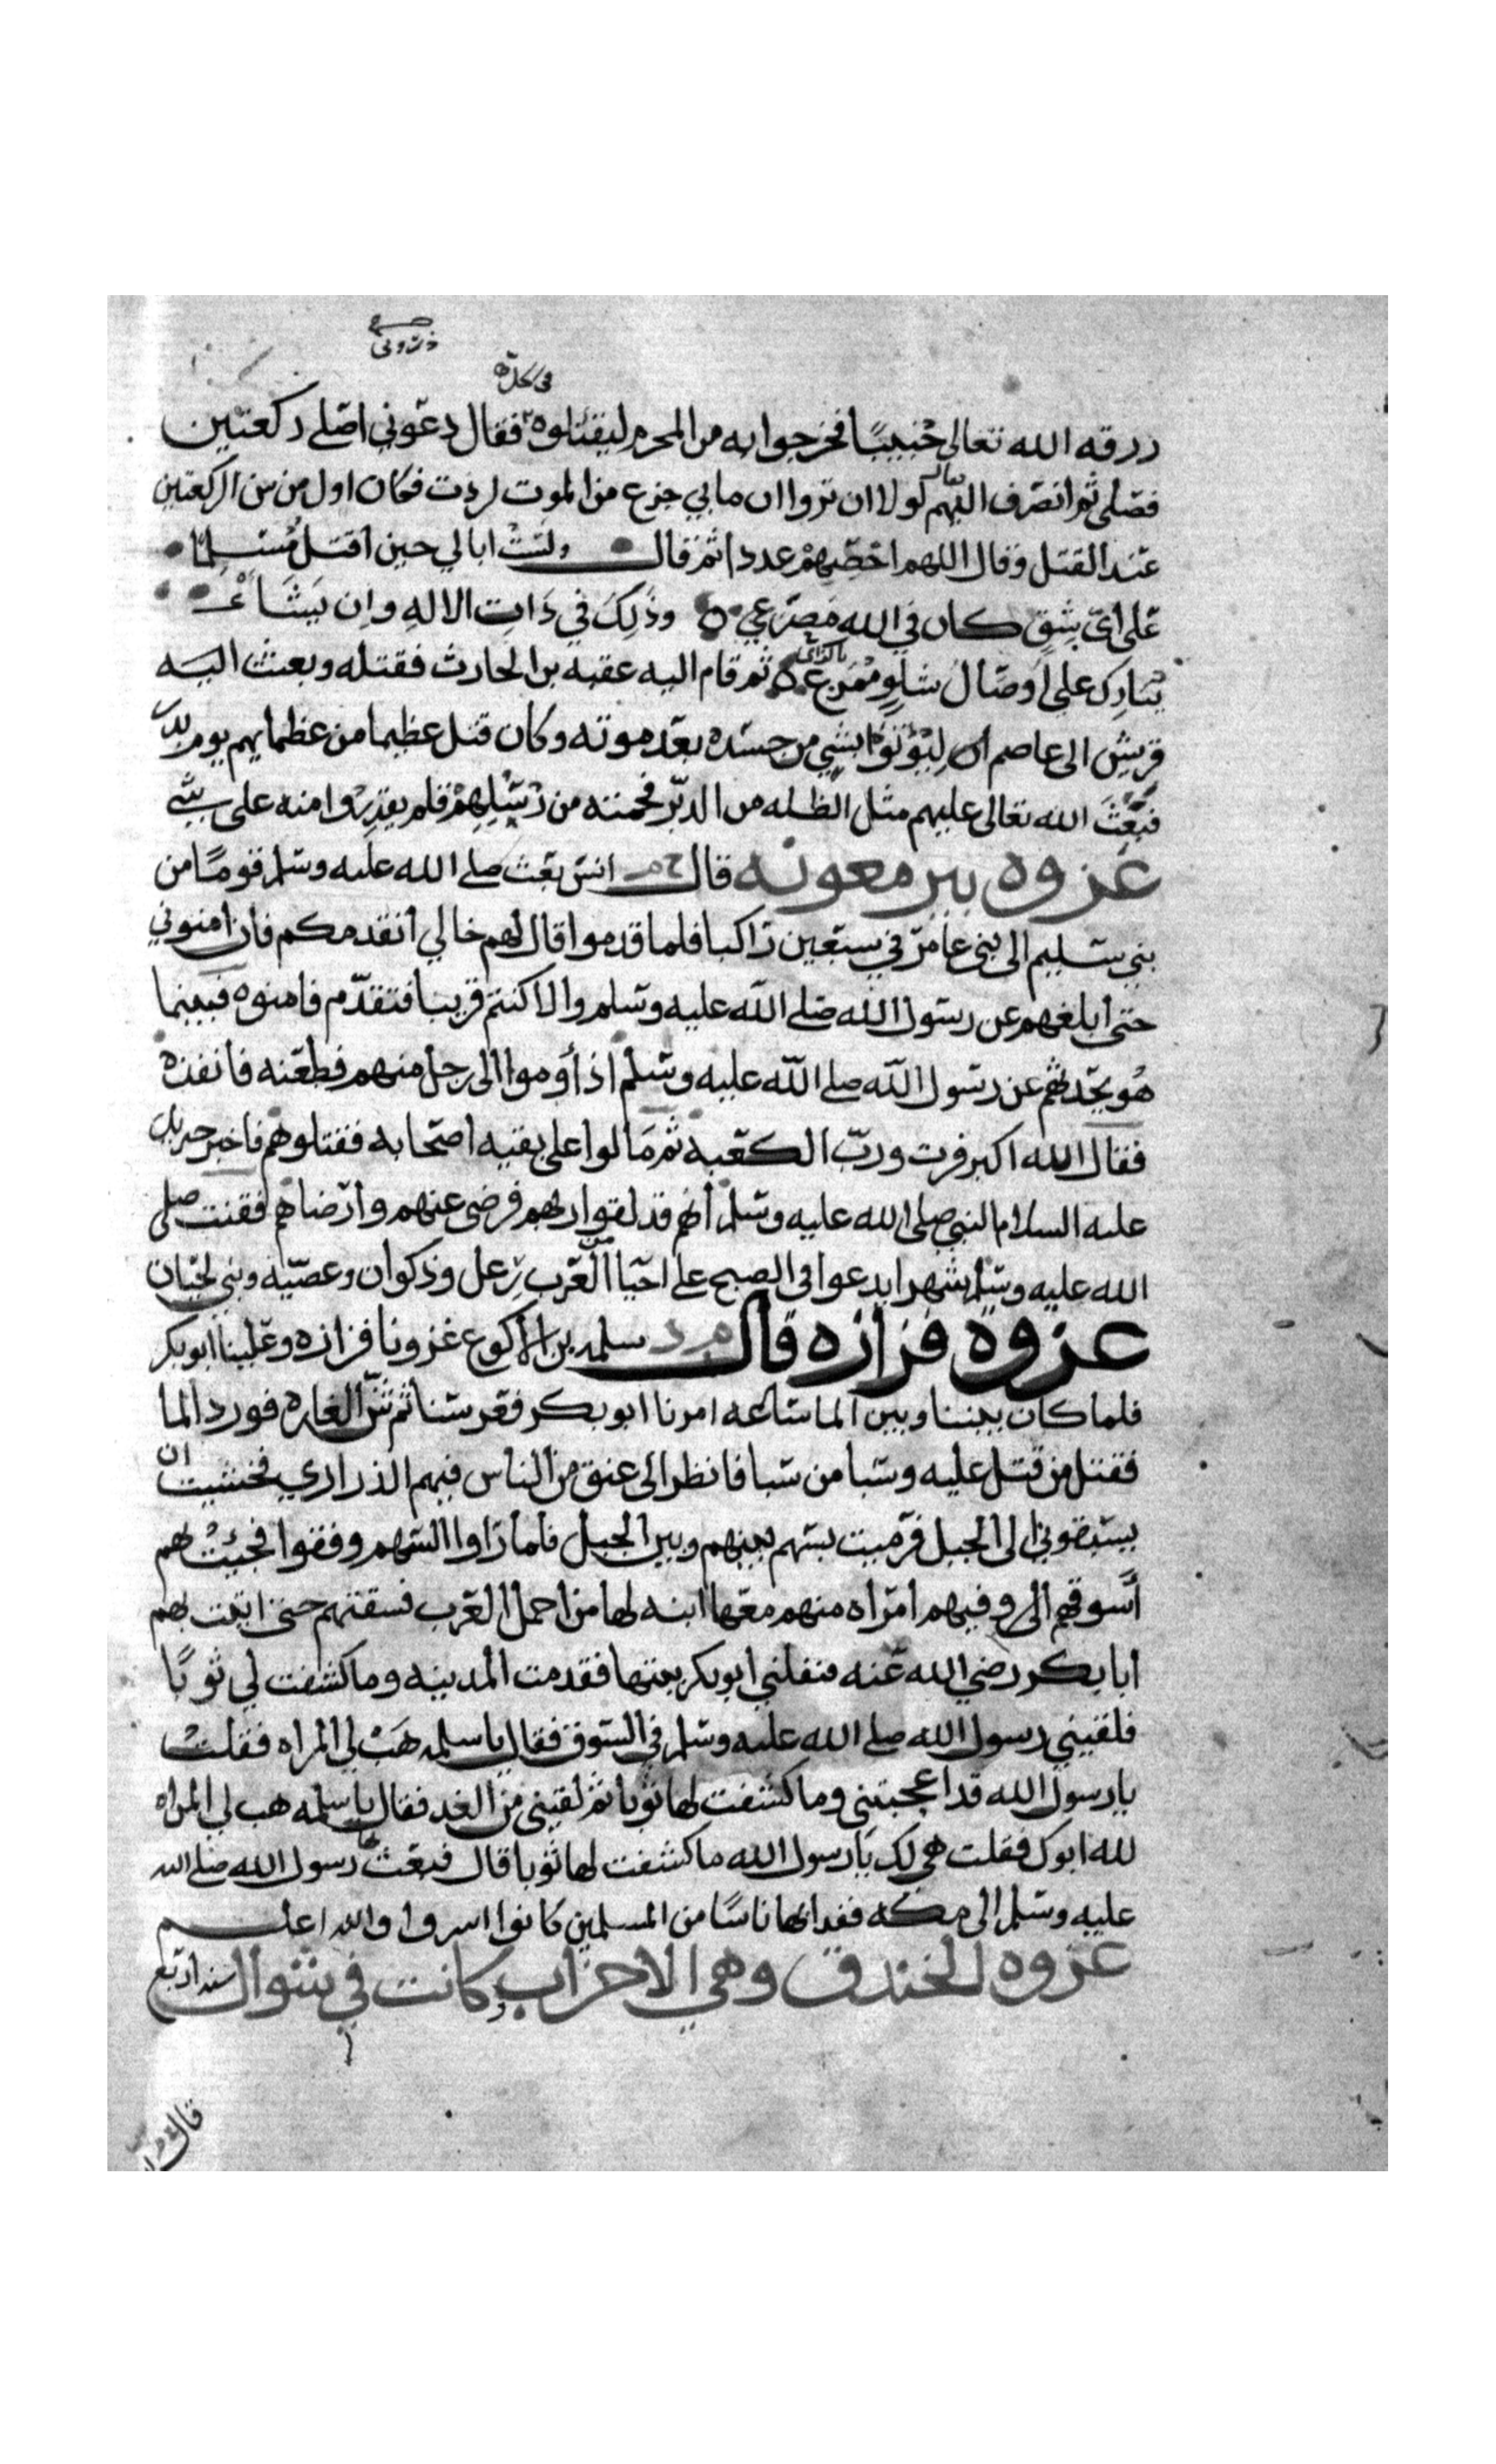 ذروني
في الحل
رزقه الله تعالى خُبيبًا فخرجوا به من الحرم ليقتلوه فقال دعوني اصلي ركعتين
فصلى ثم انصرف اليهم فقال لولا ان تروا ان ما بي جزع من الموت لزدت فكان اول من سن الركعتين
عند القتل وقال اللهم احصهم عددا ثم قال ولستُ ابالي حين اقتل مُسلما
على اي شق كان في الله مصرعي وذلك في ذات الاله وان يشأ
يُبارك على اوصال شلوٍ ممزع ثم قام اليه عقبه بن الحارث فقتله وبعثت اليه
قريش الى عاصم ان ليؤتوا بشي من جسده بعد موته وكان قتل عظيما من عظمايهم يوم بدر
فبعث الله تعالى عليهم مثل الظله من الدبر فحمته من رُسُلِهم فلم يقدروا منه على شي
غزوه بير معونه قال خ م انس بعث صلى الله عليه وسلم قومًا من
بني سليم الى بني عامر في سبعين راكبا فلما قدموا قال لهم خالي اتقدمكم فان امنوني
حتى ابلغهم عن رسول الله صلى الله عليه وسلم والا كنتم قريبا فتقدم فامنوه فبينما
هو يحدثهم عن رسول الله صلى الله عليه وسلم اذ أوموا الى رجل منهم فطعنه فانفذه
فقال الله اكبر فزت ورب الكعبه ثم مالوا على بقيه اصحابه فقتلوهم فاخبر جبريل
عليه السلام النبي صلى الله عليه وسلم أنهم قد لقوا ربهم فرضى عنهم وارضاهم فقنت صلى
الله عليه وسلم شهرا يدعوا في الصبح على احيا من العرب رعل وذكوان وعصيه وبني لحيان
غزوة فزاره قال م د سلمه بن الاكوع غزونا فزاره وعلينا ابو بكر
فلما كان بيننا وبين الما ساعه امرنا ابو بكر فعرسنا ثم شن الغاره فورد الما
فقتل من قتل عليه وسبا من سبا فانظر الى عنق من الناس فيهم الذراري فخشيت ان
يسبقوني الى الجبل فرميت بسهم بينهم وبين الجبل فلما راوا السهم وقفوا فجيت بهم
أسوقهم وفيهم امراه منهم معها ابنه لها من اجمل العرب فسقتهم حتى اتيت بهم
ابا بكر رضي الله عنه فنفلني ابو بكر بنتها فقدمت المدينه وما كشفت لي ثوبًا
فلقيني رسول الله صلى الله عليه وسلم في السوق فقال يا سلمه هَبْ لي المراه فقلت
يا رسول الله قد اعجبتني وما كشفت لها ثوبا ثم لقيني من الغد فقال يا سلمه هب لي المراه
لله ابوك فقلت هي لك يا رسول الله ما كشفت لها ثوبا قال فبعث بها رسول الله صلى الله
عليه وسلم الى مكه ففدا بها ناسًا من المسلمين كانوا اسروا والله اعلم
غزوه الخندق وهي الاحزاب وكانت في شوال سنه اربع
قال